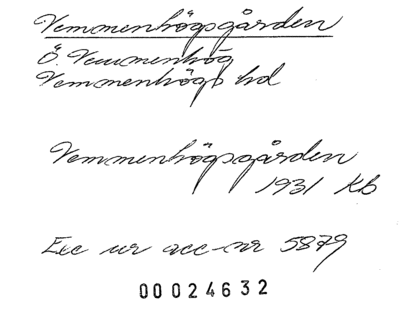 Vemmenhögsgården
Ö. Vemmenhög
Vemmenhögs hd
Vemmenhögsgården
1931 Kb
Exc ur acc-nr 5879
00024632